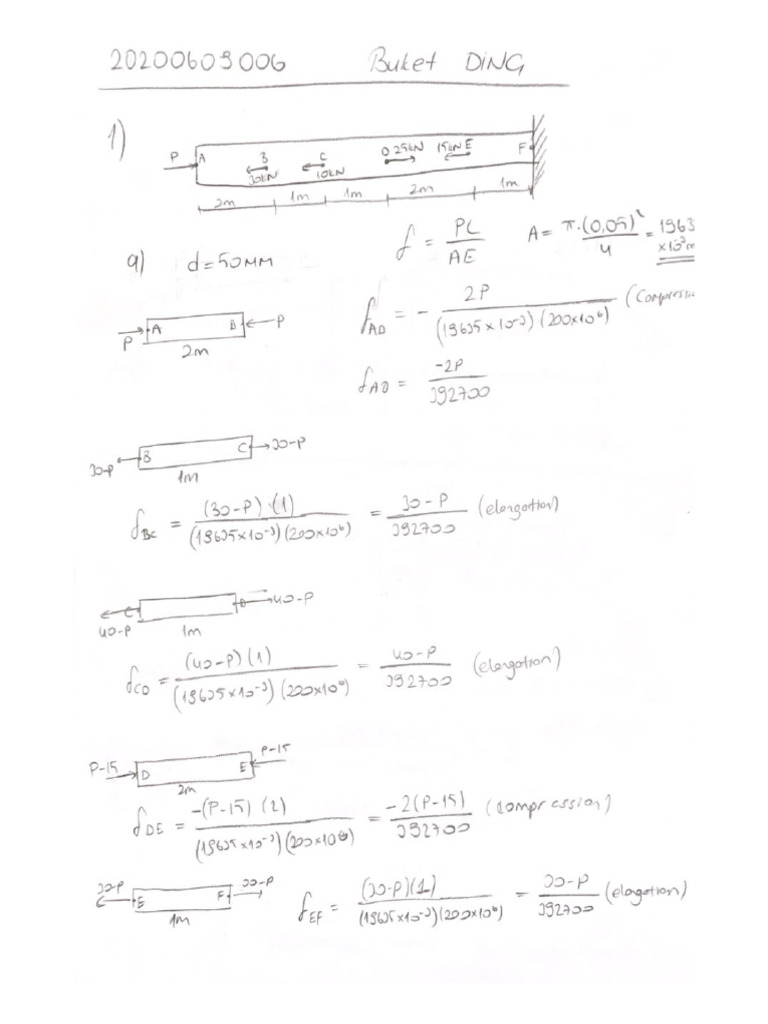 20200609006 Buket DİNG
1)
P A B 30kN C 10kN D 25kN 15kN E F
2m 1m 1m 2m 1m
a) d = 50mm
f = PL / AE
A = π.(0,05)² / 4 = 1963
×10⁻³m
P A B P
2m
f_AB = - 2P / (1,9635×10⁻³)(200×10⁶) (Compressi
f_AB = -2P / 392700
30-P B C 30-P
1m
f_BC = (30-P).(1) / (1,9635×10⁻³)(200×10⁶) = 30-P / 392700 (elongation)
40-P C D 40-P
1m
f_CD = (40-P)(1) / (1,9635×10⁻³)(200×10⁶) = 40-P / 392700 (elongation)
P-15 D E P-15
2m
f_DE = -(P-15)(2) / (1,9635×10⁻³)(200×10⁶) = -2(P-15) / 392700 (compression)
30-P E F 30-P
1m
f_EF = (30-P)(1) / (1,9635×10⁻³)(200×10⁶) = 30-P / 392700 (elongation)